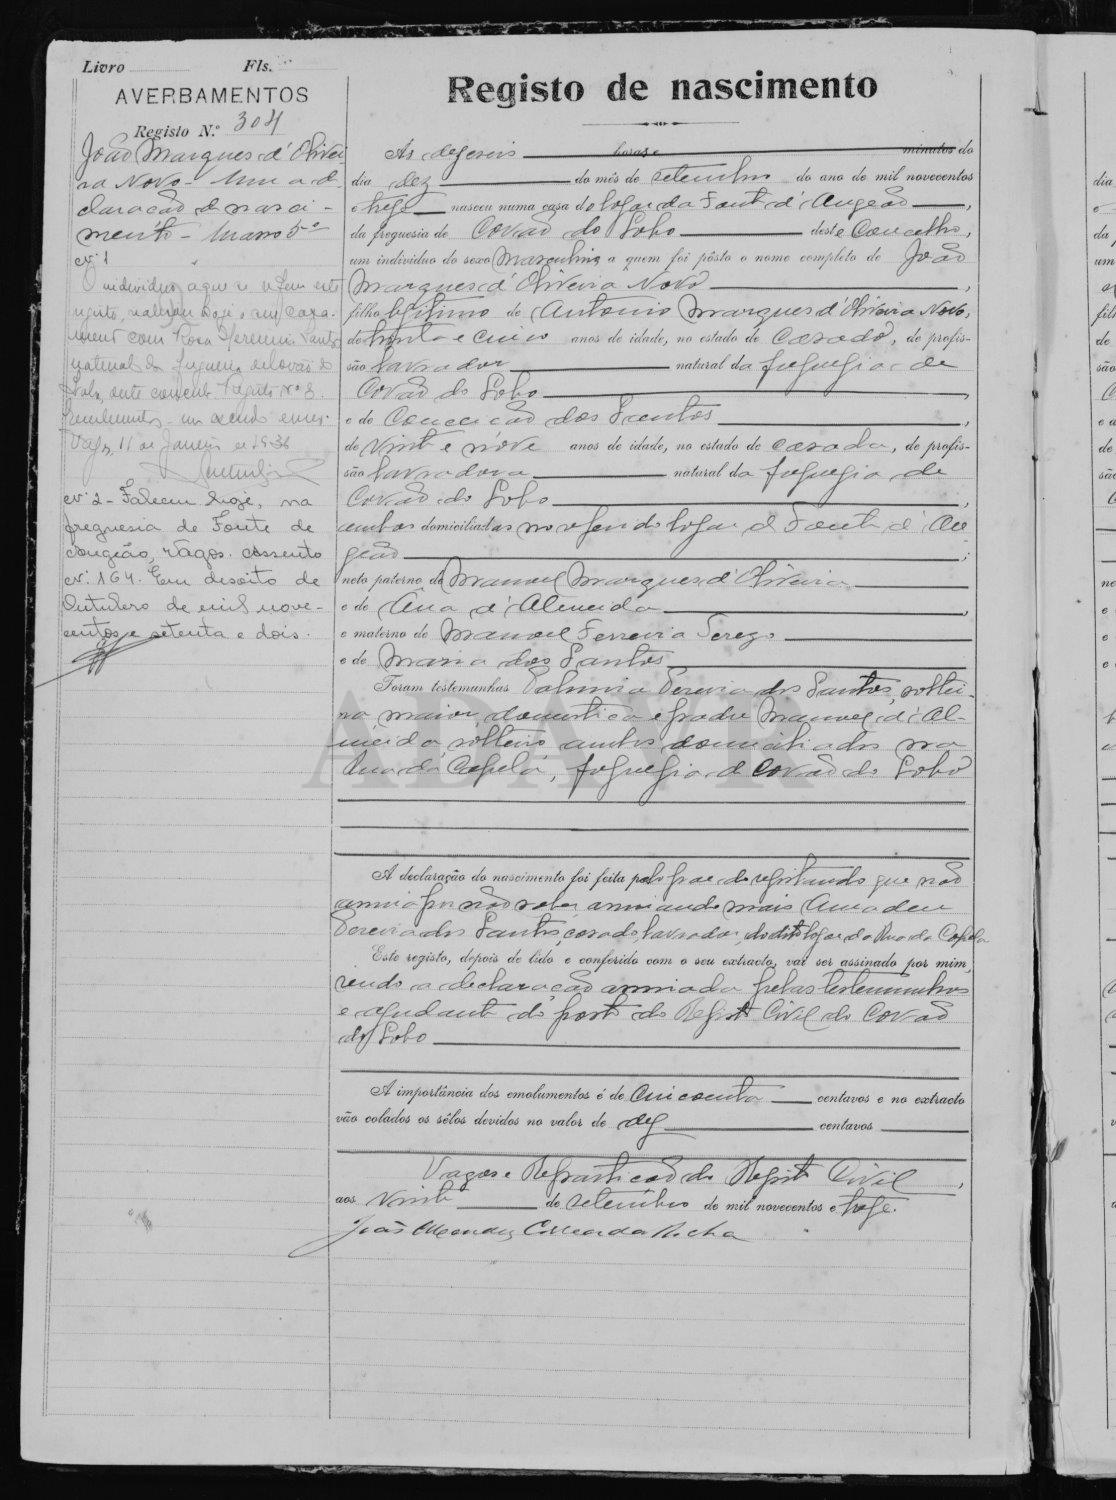 Livro Fls.
AVERBAMENTOS
Registo N.º 304
João Marques d'Olivei
ra Novo - Uma de
claração de nasci-
mento - Masso 5º
Nº 1
O individuo a que se refere este
registo, realizou hoje o seu casa-
mento com Rosa Santos
natural da freguesia de Covão do
Lobo, Registo Nº 3.
Vagos, 11 de Janeiro de 1936
Nº 2 - Faleceu hoje, na
freguesia de Fonte de
Angeão, Vagos. Assento
N.º 164. Em dezoito de
Outubro de mil nove-
centos e setenta e dois.
Registo de nascimento
As dezeseis horas e minutos do
dia dez do mês de setembro do ano de mil novecentos
e treze nasceu numa casa do logar da Fonte d'Angeão,
da freguesia de Covão do Lobo deste Concelho,
um individuo do sexo Masculino a quem foi pôsto o nome completo de João
Marques d'Oliveira Novo,
filho legitimo de Antonio Marques d'Oliveira Novo,
de trinta e cinco anos de idade, no estado de casado, de profis-
são lavrador natural da freguezia de
Covão do Lobo,
e de Conceicão dos Santos,
de Vinte e nove anos de idade, no estado de casada, de profis-
são lavradora natural da freguezia de
Covão do Lobo,
ambos domiciliados no referido logar de Fonte d'An
geão;
neto paterno de Manuel Marques d'Oliveira
e de Ana d'Almeida,
e materno de Manuel Ferreira
e de Maria dos Santos
Foram testemunhas Palmira Pereira dos Santos, soltei-
ra maior, domestica e padre Manuel d'Al-
meida solteiro ambos domiciliados na
Rua da Capela, freguezia de Covão do Lobo
A declaração do nascimento foi feita pelo pae do registando que não
assina por não saber assinando mais Amadeu
Pereira dos Santos, casado, lavrador, do dito logar da Rua da Capela
Este registo, depois de lido e conferido com o seu extracto, vai ser assinado por mim,
sendo a declaração assinada pelas testemunhas
e ajudante do posto do Registo Civil do Covão
do Lobo
A importância dos emolumentos é de cincoenta centavos e no extracto
vão colados os sêlos devidos no valor de dez centavos
Vagos e Repartição do Registo Civil,
aos vinte de setembro de mil novecentos e treze.
João Mendes Correia da Rocha
ADAVR